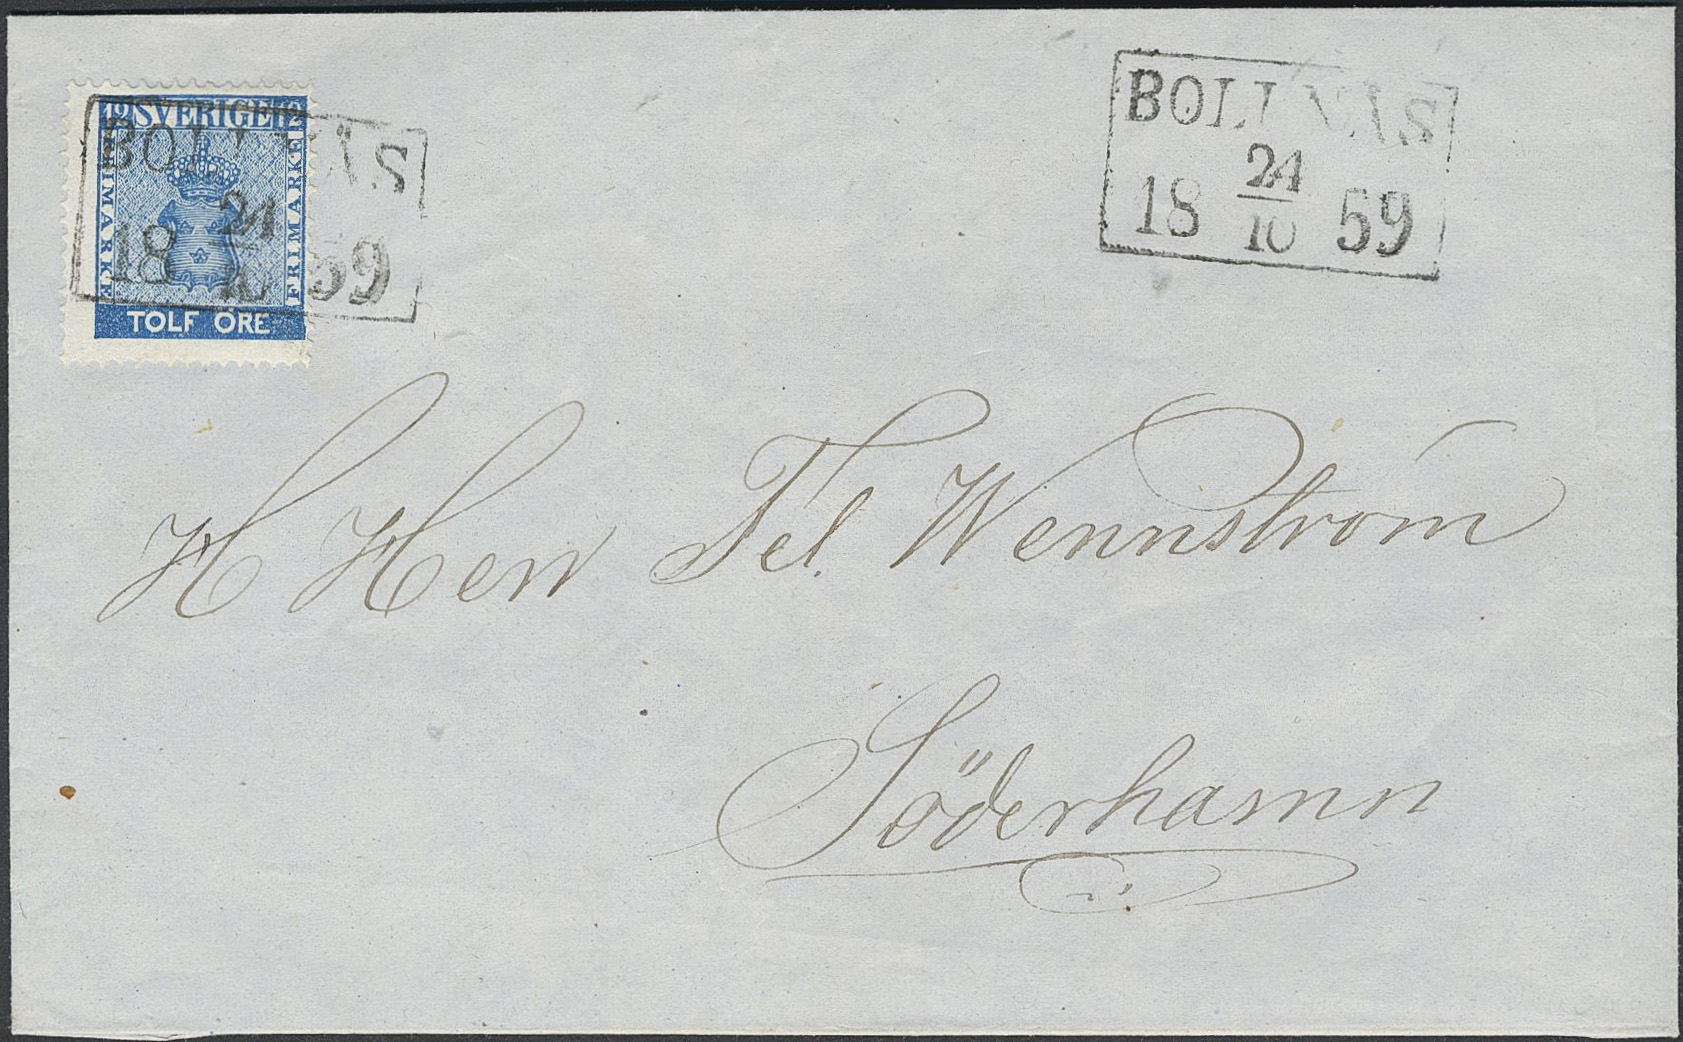 12 SVERIGE 12
FRIMARKE
FRIMARKE
TOLF ÖRE
BOLLNÄS
18 24/10 59
BOLLNÄS
18 24/10 59
H Herr Fel. Wennström
Söderhamn